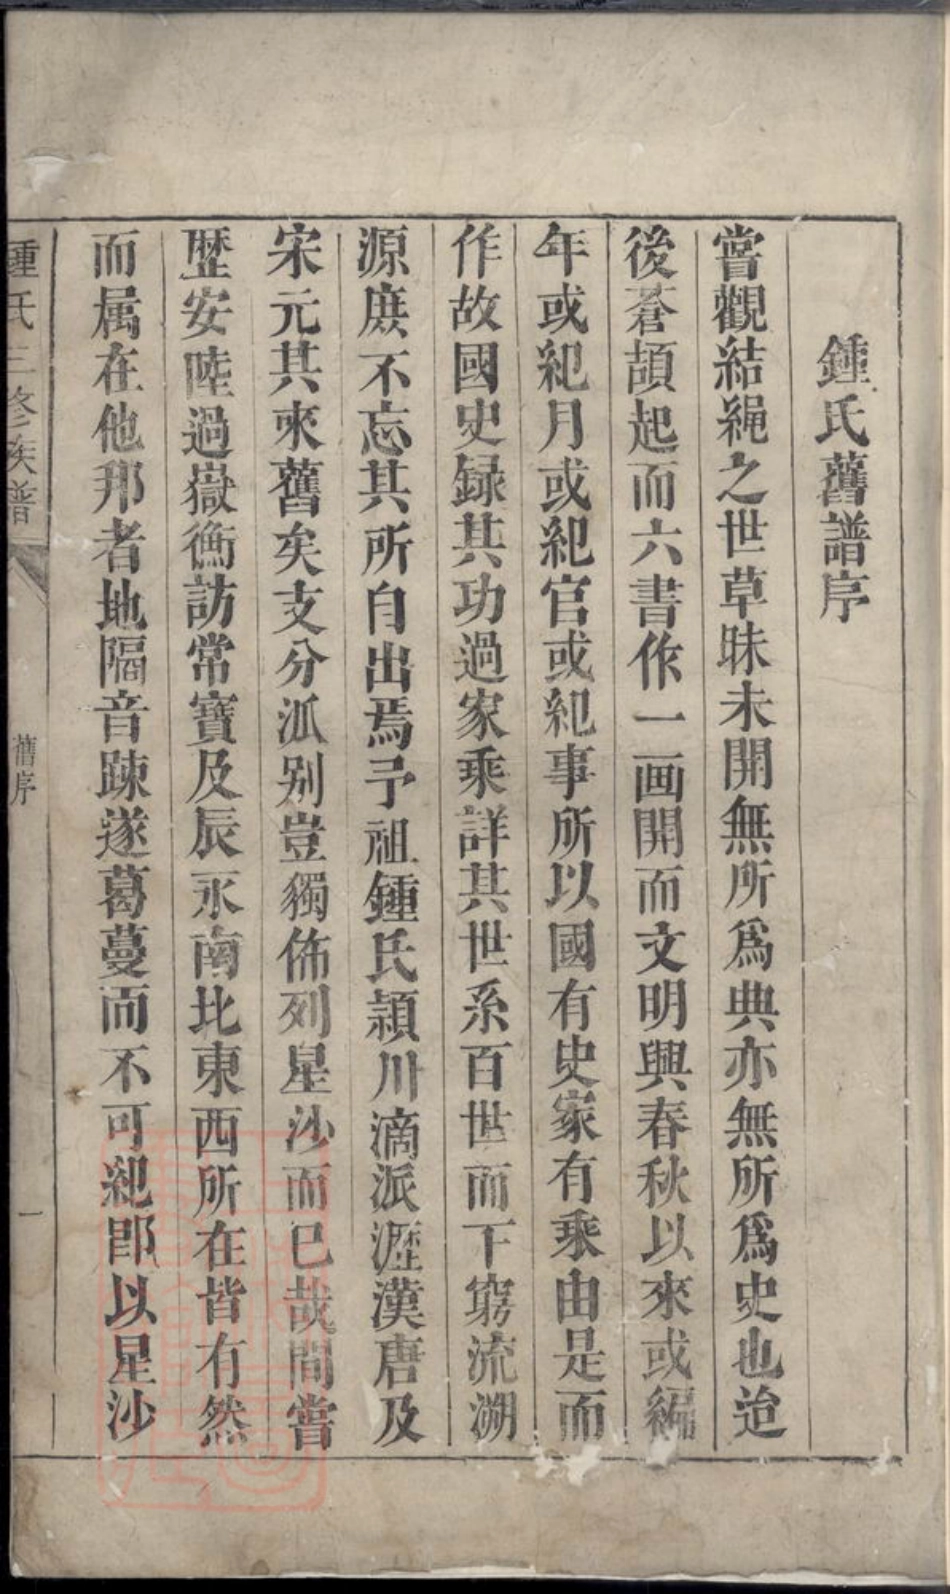 鍾氏舊譜序
嘗觀結繩之世草昧未開無所爲典亦無所爲史也迨
後蒼頡起而六書作一画開而文明興春秋以來或編
年或紀月或紀官或紀事所以國有史家有乘由是而
作故國史録其功過家乘詳其世系百世而下窮流溯
源庶不忘其所自出焉予祖鍾氏潁川滴派瀝漢唐及
宋元其來舊矣支分派别豈獨佈列星沙而已哉間嘗
歷安陸過嶽衡訪常寶及辰永南北東西所在皆有然
而属在他邦者地隔音踈遂葛蔓而不可紀即以星沙
鍾氏三修族譜
舊序
一